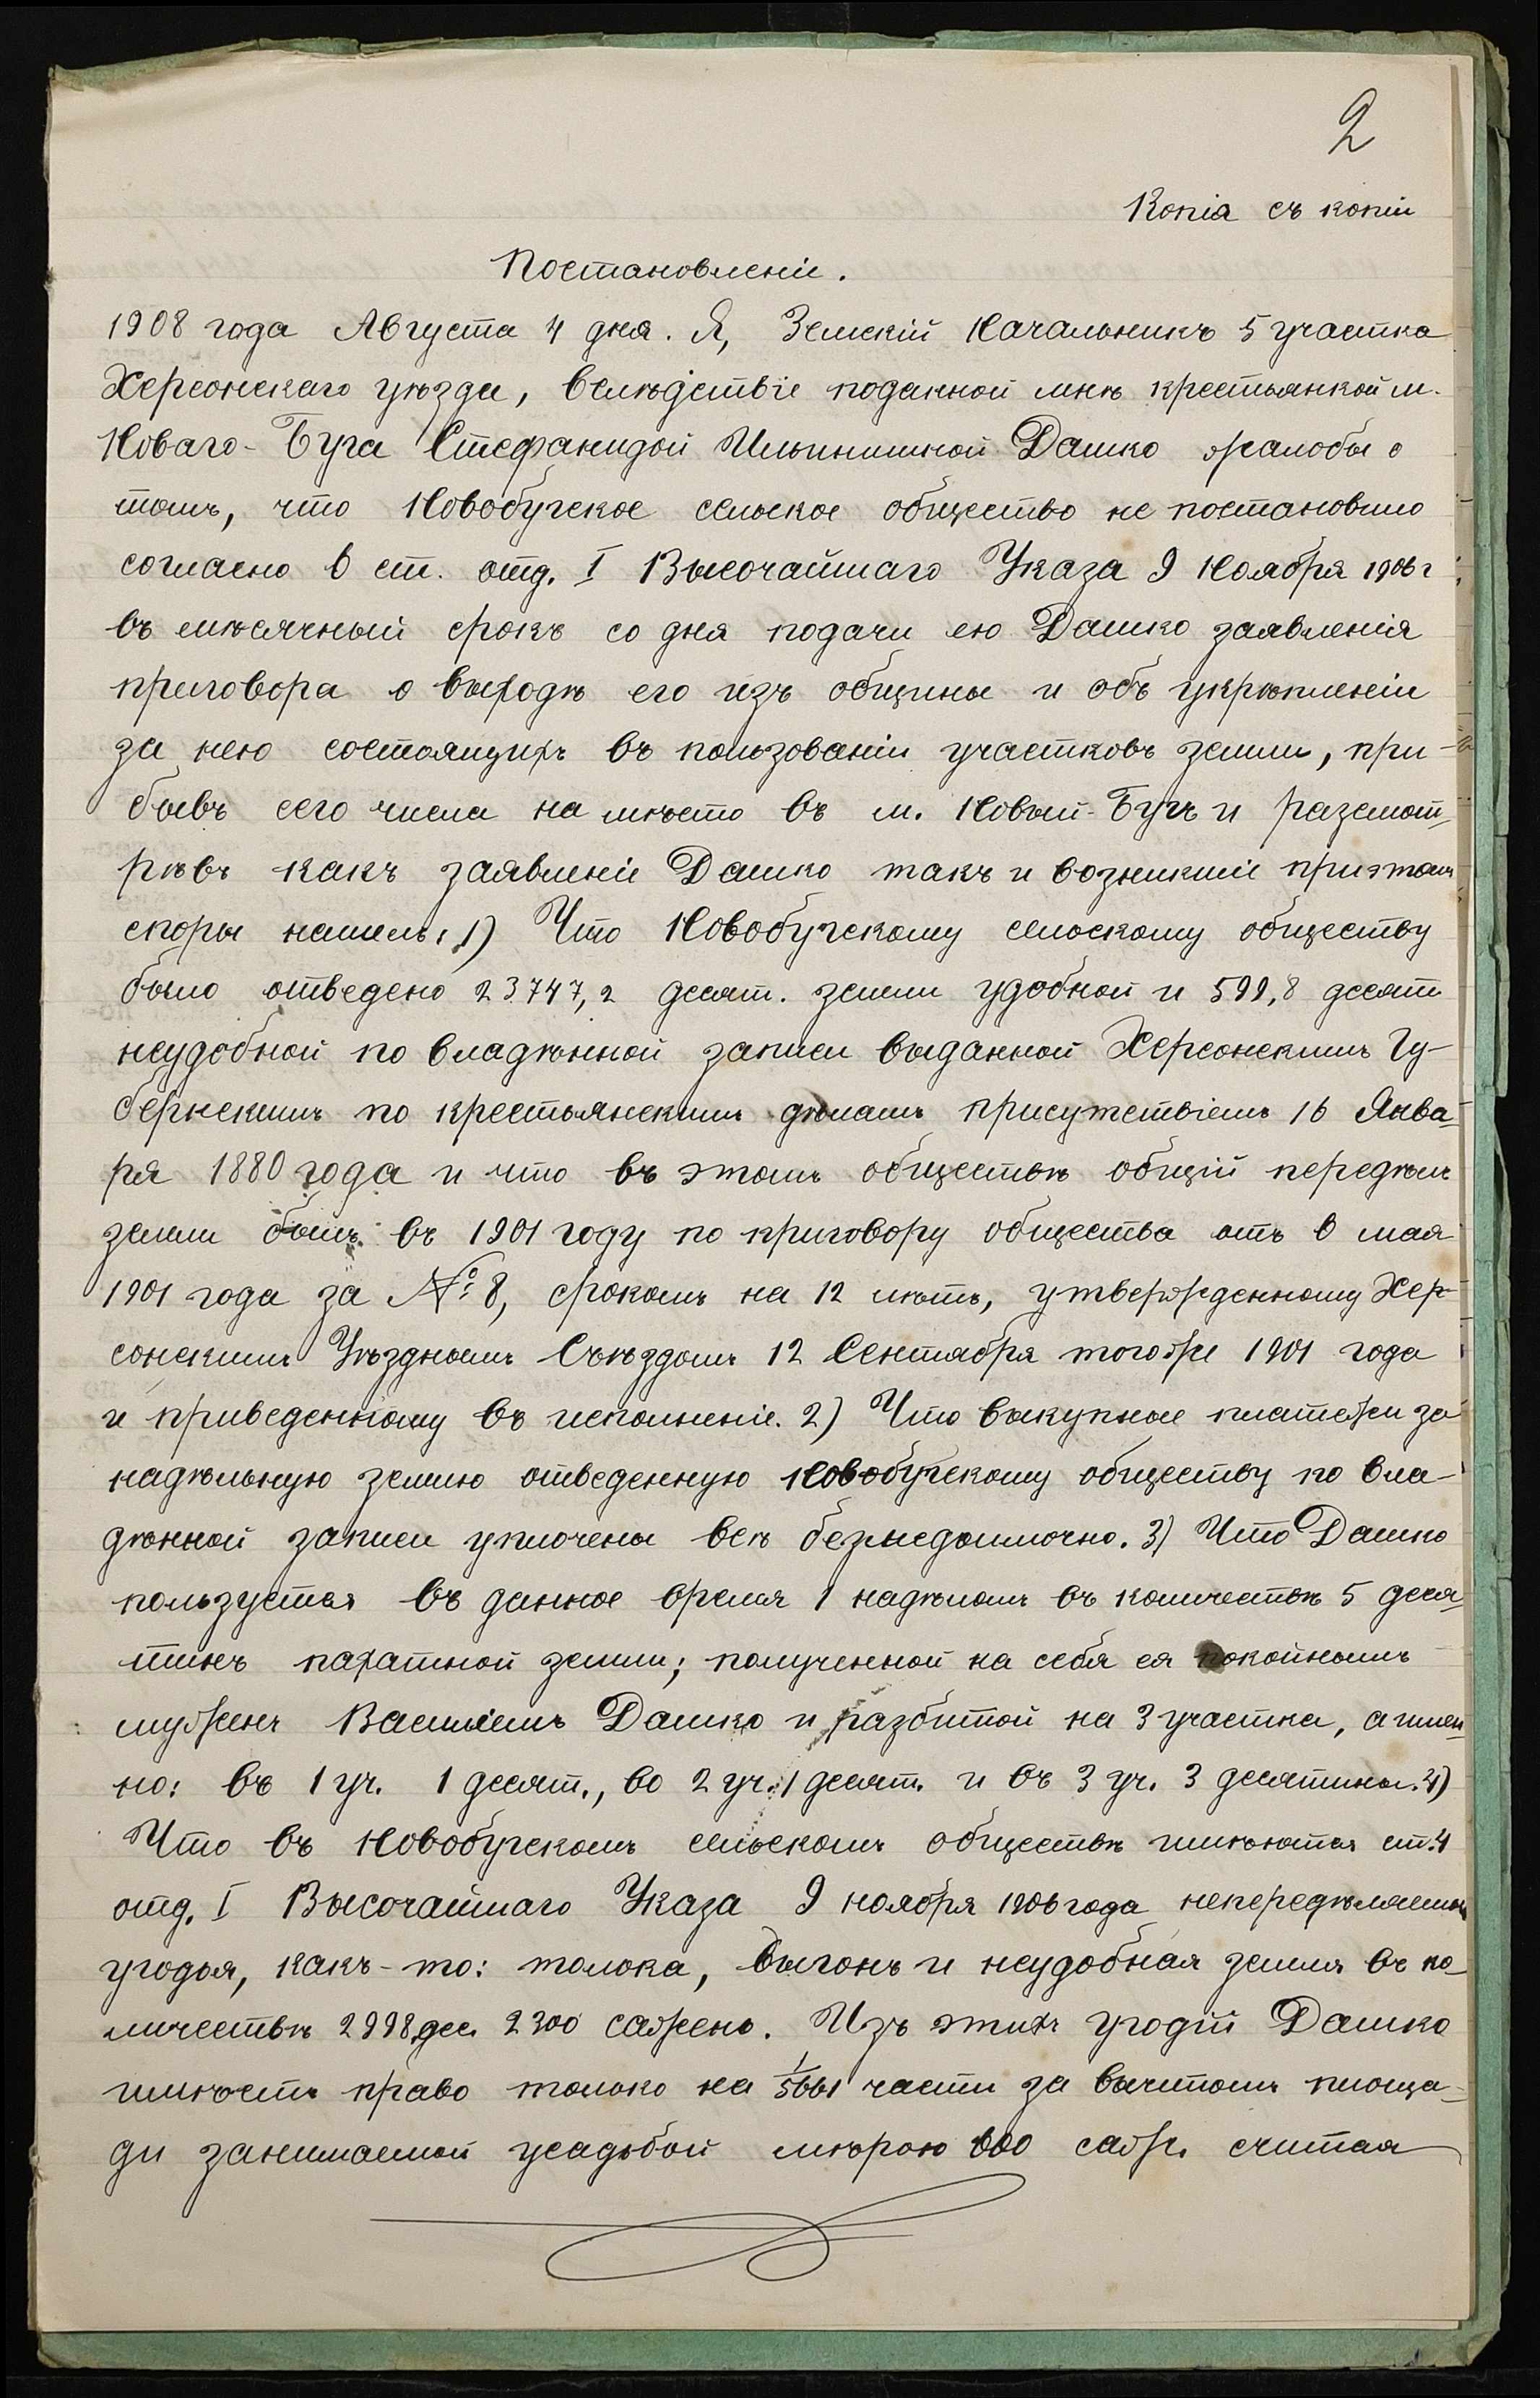 2
Копія съ копіи
Постановленіе.
1908 года Августа 4 дня. Я, Земскій Начальникъ 5 участка
Херсонскаго уѣзда, вслѣдствіе поданной мнѣ крестьянкой м.
Новаго-Буга Стефанидой Ильинишной Дашко жалобы о
томъ, что Новобугское сельское общество не постановило
согласно 6 ст. отд. I Высочайшаго Указа 9 Ноября 1906 г
въ мѣсячный срокъ со дня подачи ею Дашко заявленія
приговора о выходѣ его изъ общины и объ укрѣпленіи
за нею состоящихъ въ пользованіи участковъ земли, при-
бывъ сего числа на мѣсто въ м. Новый-Бугъ и разсмот-
рѣвъ какъ заявленіе Дашко такъ и возникшіе приэтомъ
споры нашелъ: 1) Что Новобугскому сельскому обществу
было отведено 23747,2 десят. земли удобной и 599,8 десят
неудобной по владѣнной записи выданной Херсонскимъ Гу-
бернскимъ по крестьянскимъ дѣламъ присутствіемъ 16 Янва-
ря 1880 года и что въ этомъ обществѣ общій передѣлъ
земли былъ въ 1901 году по приговору общества отъ 6 мая
1901 года за № 8, срокомъ на 12 лѣтъ, утвержденному Хер-
сонскимъ Уѣзднымъ Съѣздомъ 12 Сентября тогоже 1901 года
и приведенному въ исполненіе. 2) Что выкупные платежи за
надѣльную землю отведенную Новобугскому обществу по вла-
дѣнной записи уплочены всѣ безнедоимочно. 3) Что Дашко
пользуется въ данное время 1 надѣломъ въ количествѣ 5 деся-
тинъ пахатной земли; полученной на себя ея покойнымъ
мужемъ Василіемъ Дашко и разбитой на 3 участка, а имен-
но: въ 1 уч. 1 десят., во 2 уч. 1 десят. и въ 3 уч. 3 десятины. 4)
Что въ Новобугскомъ сельскомъ обществѣ имѣются ст. 4
отд. I Высочайшаго Указа 9 ноября 1906 года непередѣляемыя
угодья, какъ-то: толока, выгонъ и неудобная земля въ ко-
личествѣ 2998 дес. 2300 сажень. Изъ этихъ угодій Дашко
имѣетъ право только на 1/5661 части за вычетомъ площа-
ди занимаемой усадьбой мѣрою 600 саж. считая